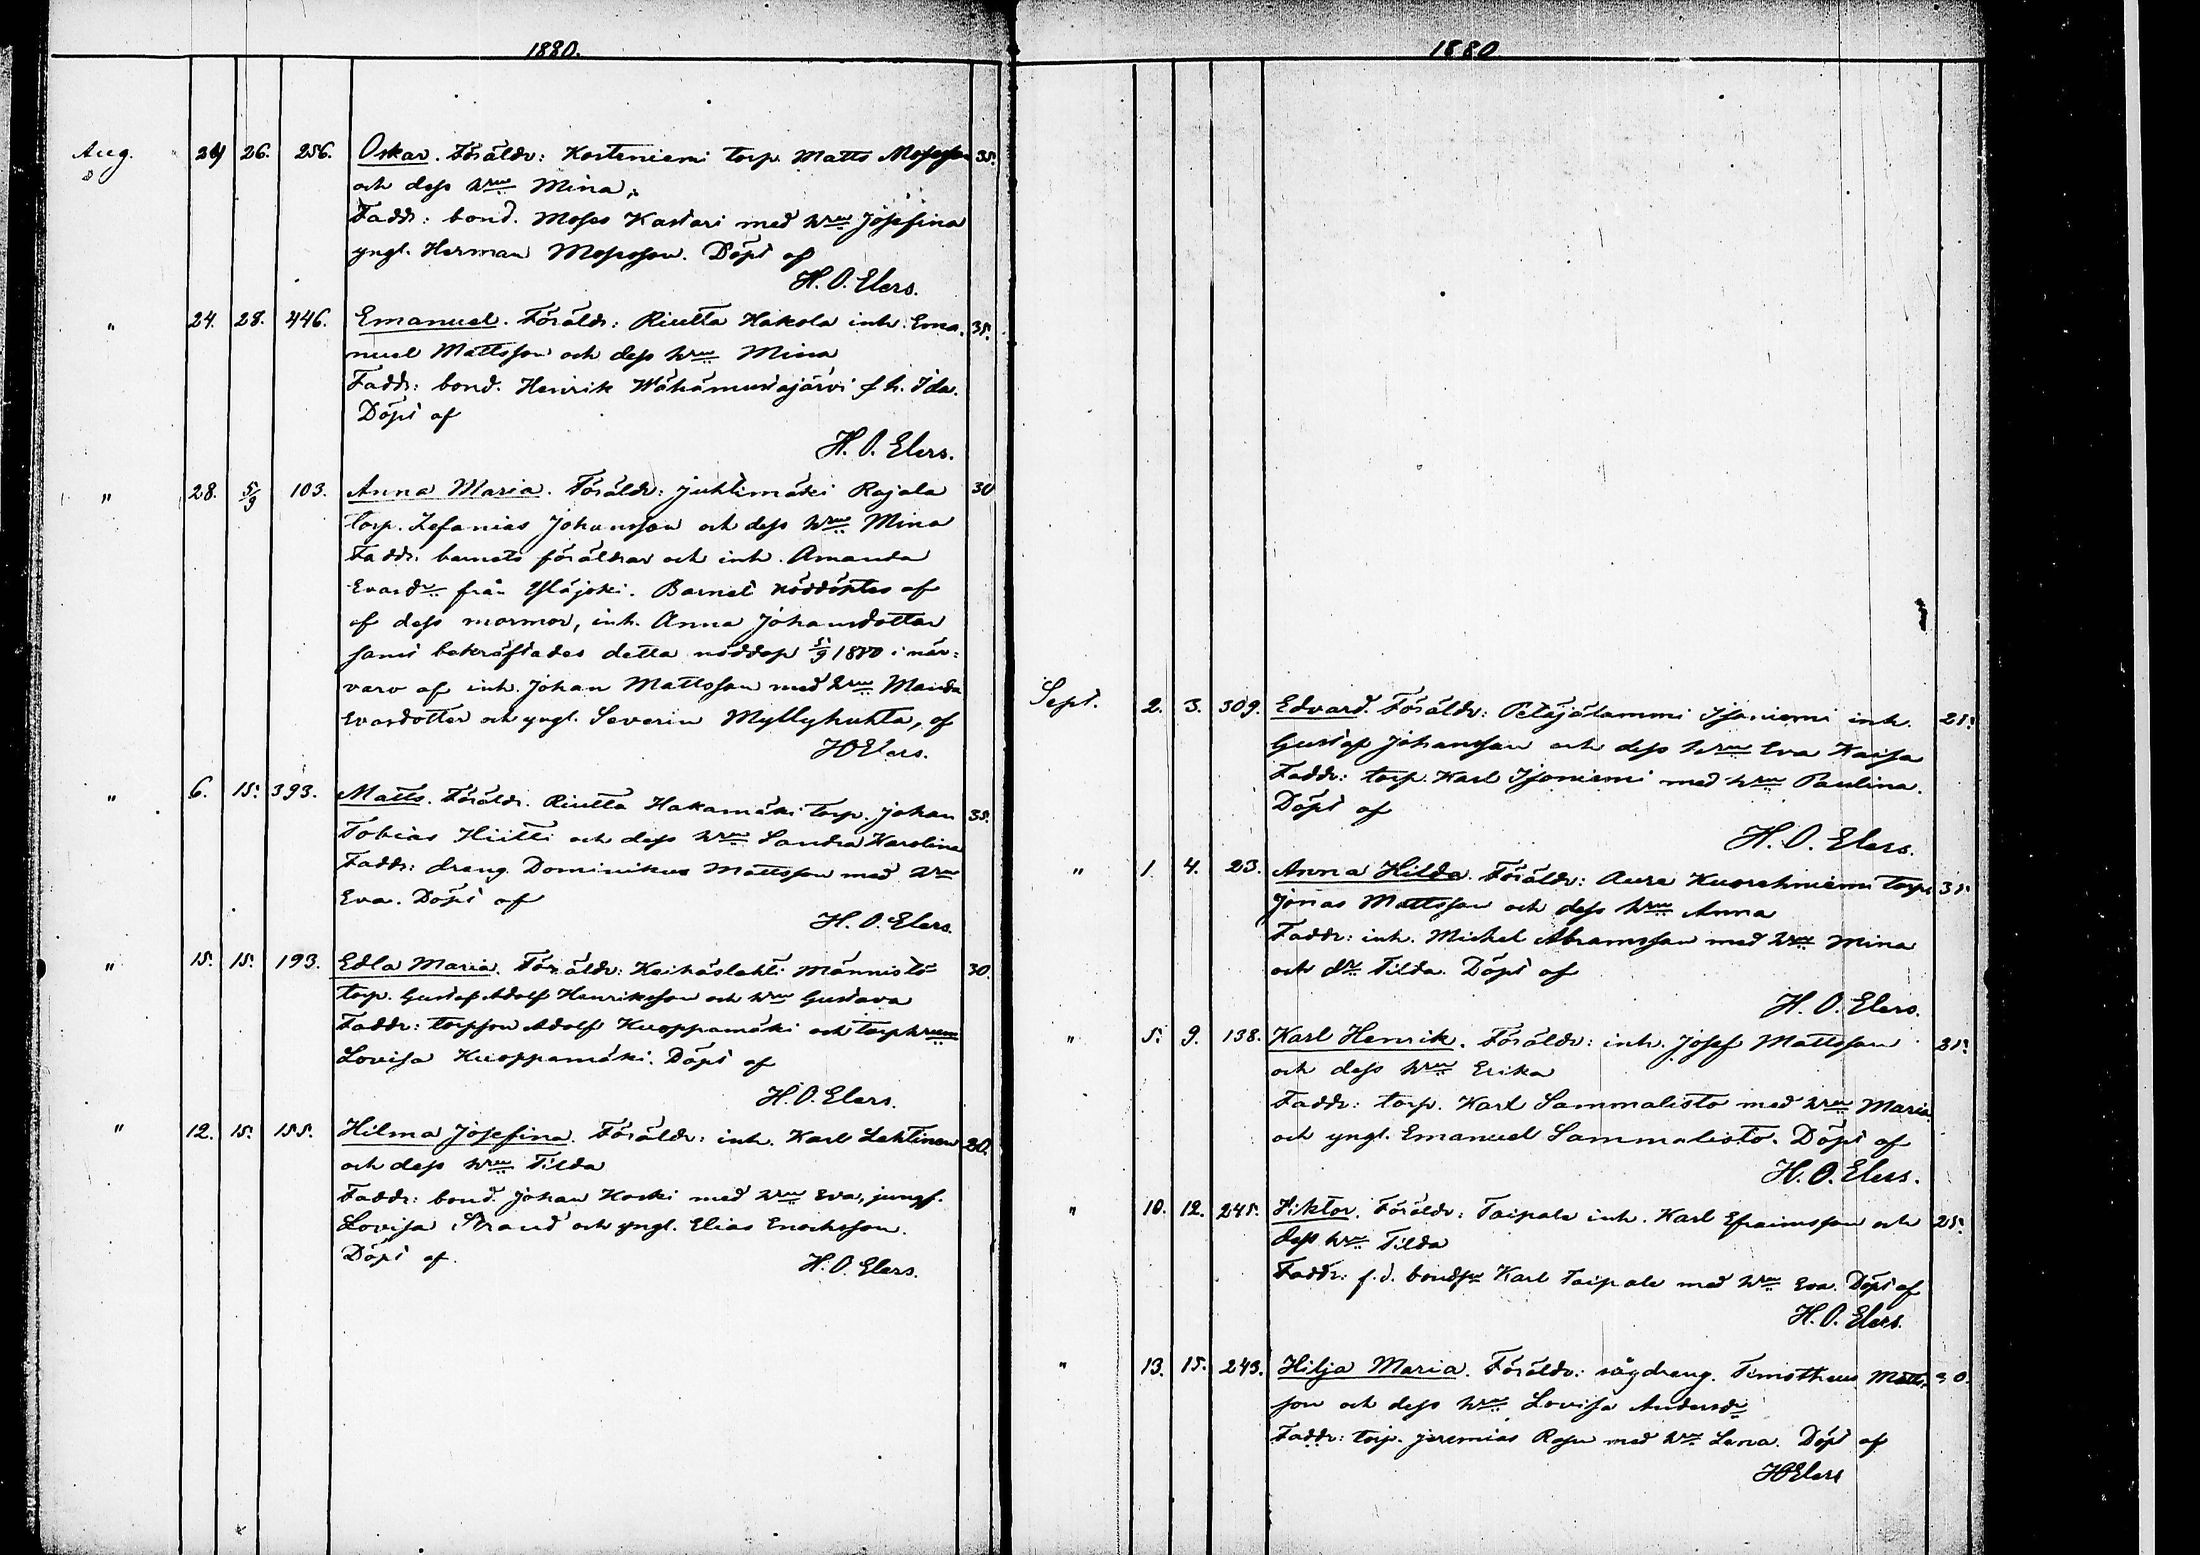 1880.
Aug. 24 26. 256. Oskar. Föräldr: Kosteniemi torp. Matts Mosesson 35.
och dess hru Mina,
Faddr: bond. Moses Kastari med hru Josefina
yngl. Herman Mosesson. Döpt af
H. O. Elers.
" 24. 28. 446. Emanuel. Föräldr: Riutta Hakola inh. Ema- 35.
nuel Mattsson och dess hru Mina
Faddr: bond. Henrik Wähämustajärvi f h. Ida.
Döpt af
H. O. Elers.
" 28. 5/9 103. Anna Maria. Föräldr: Juhtimäki Rajala 30
torp. Zefanias Johansson och dess hru Mina
Faddr. barnets föräldrar och inh. Amanda
Evardr från Yläjoki. Barnet nöddöptes af
af dess mormor, inh. Anna Johansdotter
samt bekräftades detta nöddop 5/9 1880 i när=
varo af inh. Johan Mattsson med hru Manda
Evardotter och yngl. Severin Myllyhuhta, af
HOElers.
" 6. 15. 393. Matts. Föräldr. Riutta Hakamäki torp. Johan 35.
Tobias Hiitti och dess hru Sandra Karolina
Faddr: dräng Dominikus Mattsson med hru
Eva. Döpt af
H. O. Elers.
" 15. 15. 193. Edla Maria. Föräldr: Keihäslahti Männistö 30.
torp. Gustaf Adolf Henriksson och hru Gustava
Faddr: torpson Adolf Kuoppamäki och torphrun
Lovisa Kuoppamäki. Döpt af
H. O. Elers.
" 12. 15. 155. Hilma Josefina. Föräldr: inh. Karl Lehtinen 20.
och dess hru Tilda
Faddr: bond. Johan Koski med hru Eva, jungf.
Lovisa Strand och yngl. Elias Enochsson.
Döpt af
H. O. Elers.
1880
Sept. 2. 3. 309. Edvard. Föräldr: Petäjälammi Isoniemi inh. 25.
Gustaf Johansson och dess hru Eva Kaisa
Faddr: torp. Karl Isoniemi med hru Paulina.
Döpt af
H. O. Elers.
" 1 4. 23. Anna Hilda. Föräldr: Aure Kuorehniemi torp. 35.
Jonas Mattsson och dess hru Anna
Faddr: inh. Michel Abramsson med hru Mina
och dr Tilda. Döpt af
H. O. Elers.
" 5. 9. 138. Karl Henrik. Föräldr: inh. Josef Mattsson
och dess hru Erika
Faddr: torp. Karl Sammalisto med hru Maria
och yngl. Emanuel Sammalisto. Döpt af
H. O. Elers.
" 10. 12. 245. Viktor. Föräldr: Taipale inh. Karl Efraimsson och 25.
dess hru Tilda
Faddr: f.d. bondsn Karl Taipale med hru Eva. Döpt af
H. O. Elers.
" 13. 15. 243. Hilja Maria. Föräldr: sågdräng. Timotheus Matts-
son och dess hru Lovisa Andersdr
Faddr: torp. Jeremias Rosu med hru Lena. Döpt af
HOElers